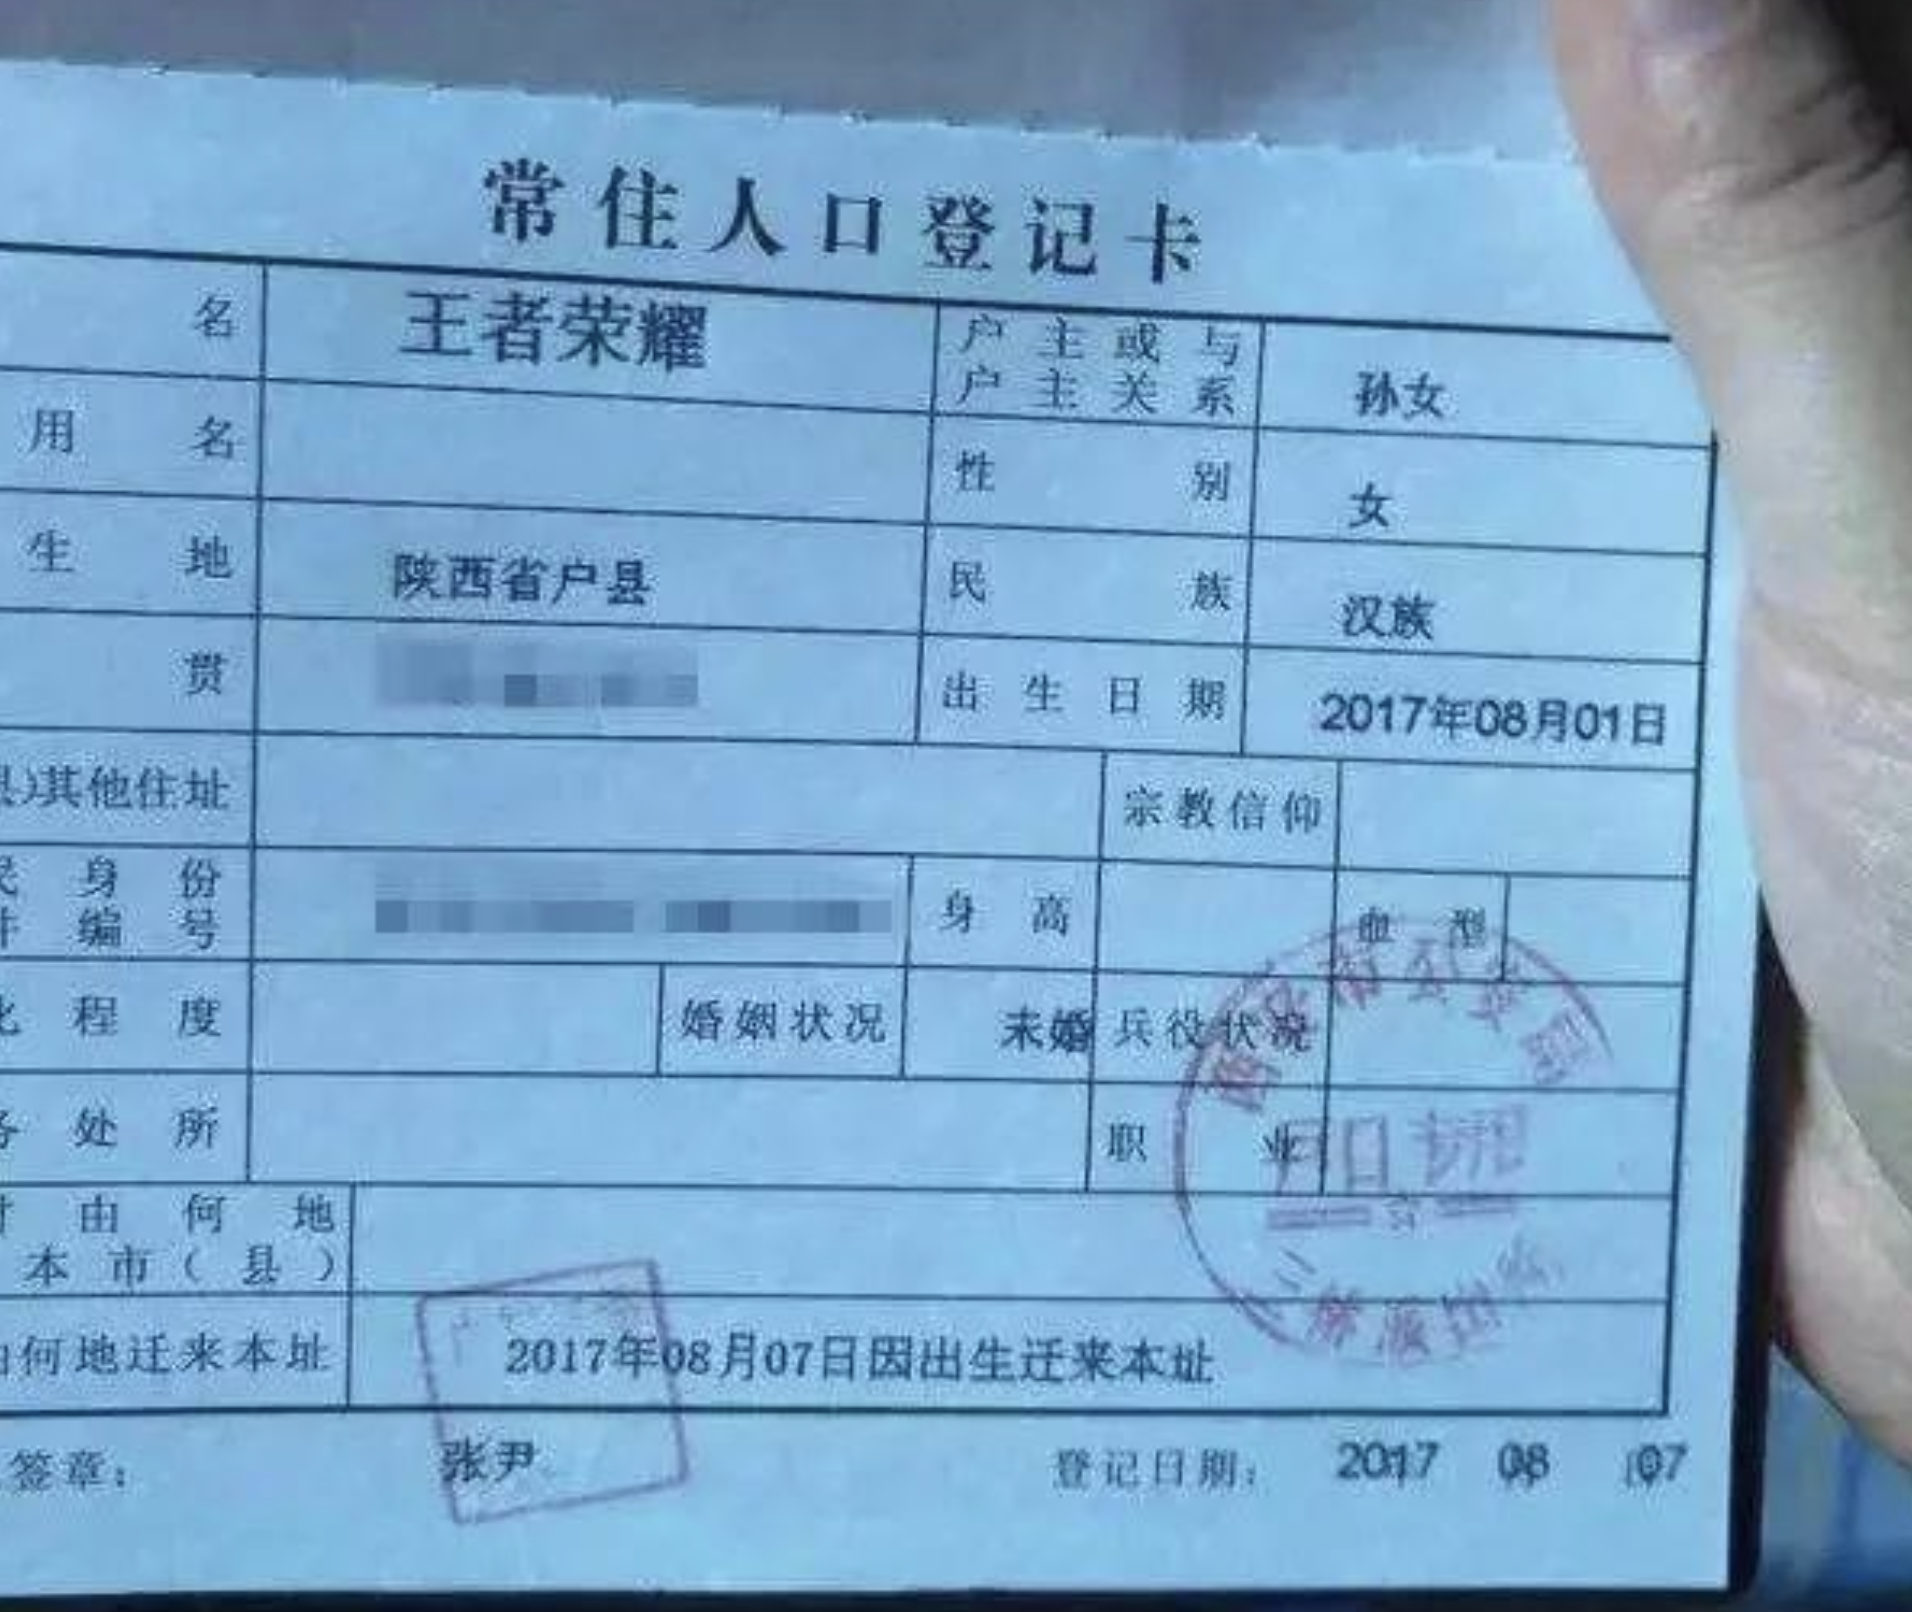 常住人口登记卡
名 王者荣耀 户主或与户主关系 孙女
用名 性别 女
生地 陕西省户县 民族 汉族
贯 出生日期 2017年08月01日
)其他住址 宗教信仰
身份 编号 身高 血型
程度 婚姻状况 未婚 兵役状况
处所 职业
由何地
本市(县)
何地迁来本址 2017年08月07日因出生迁来本址
签章: 张尹 登记日期: 2017 08 07
户口专用